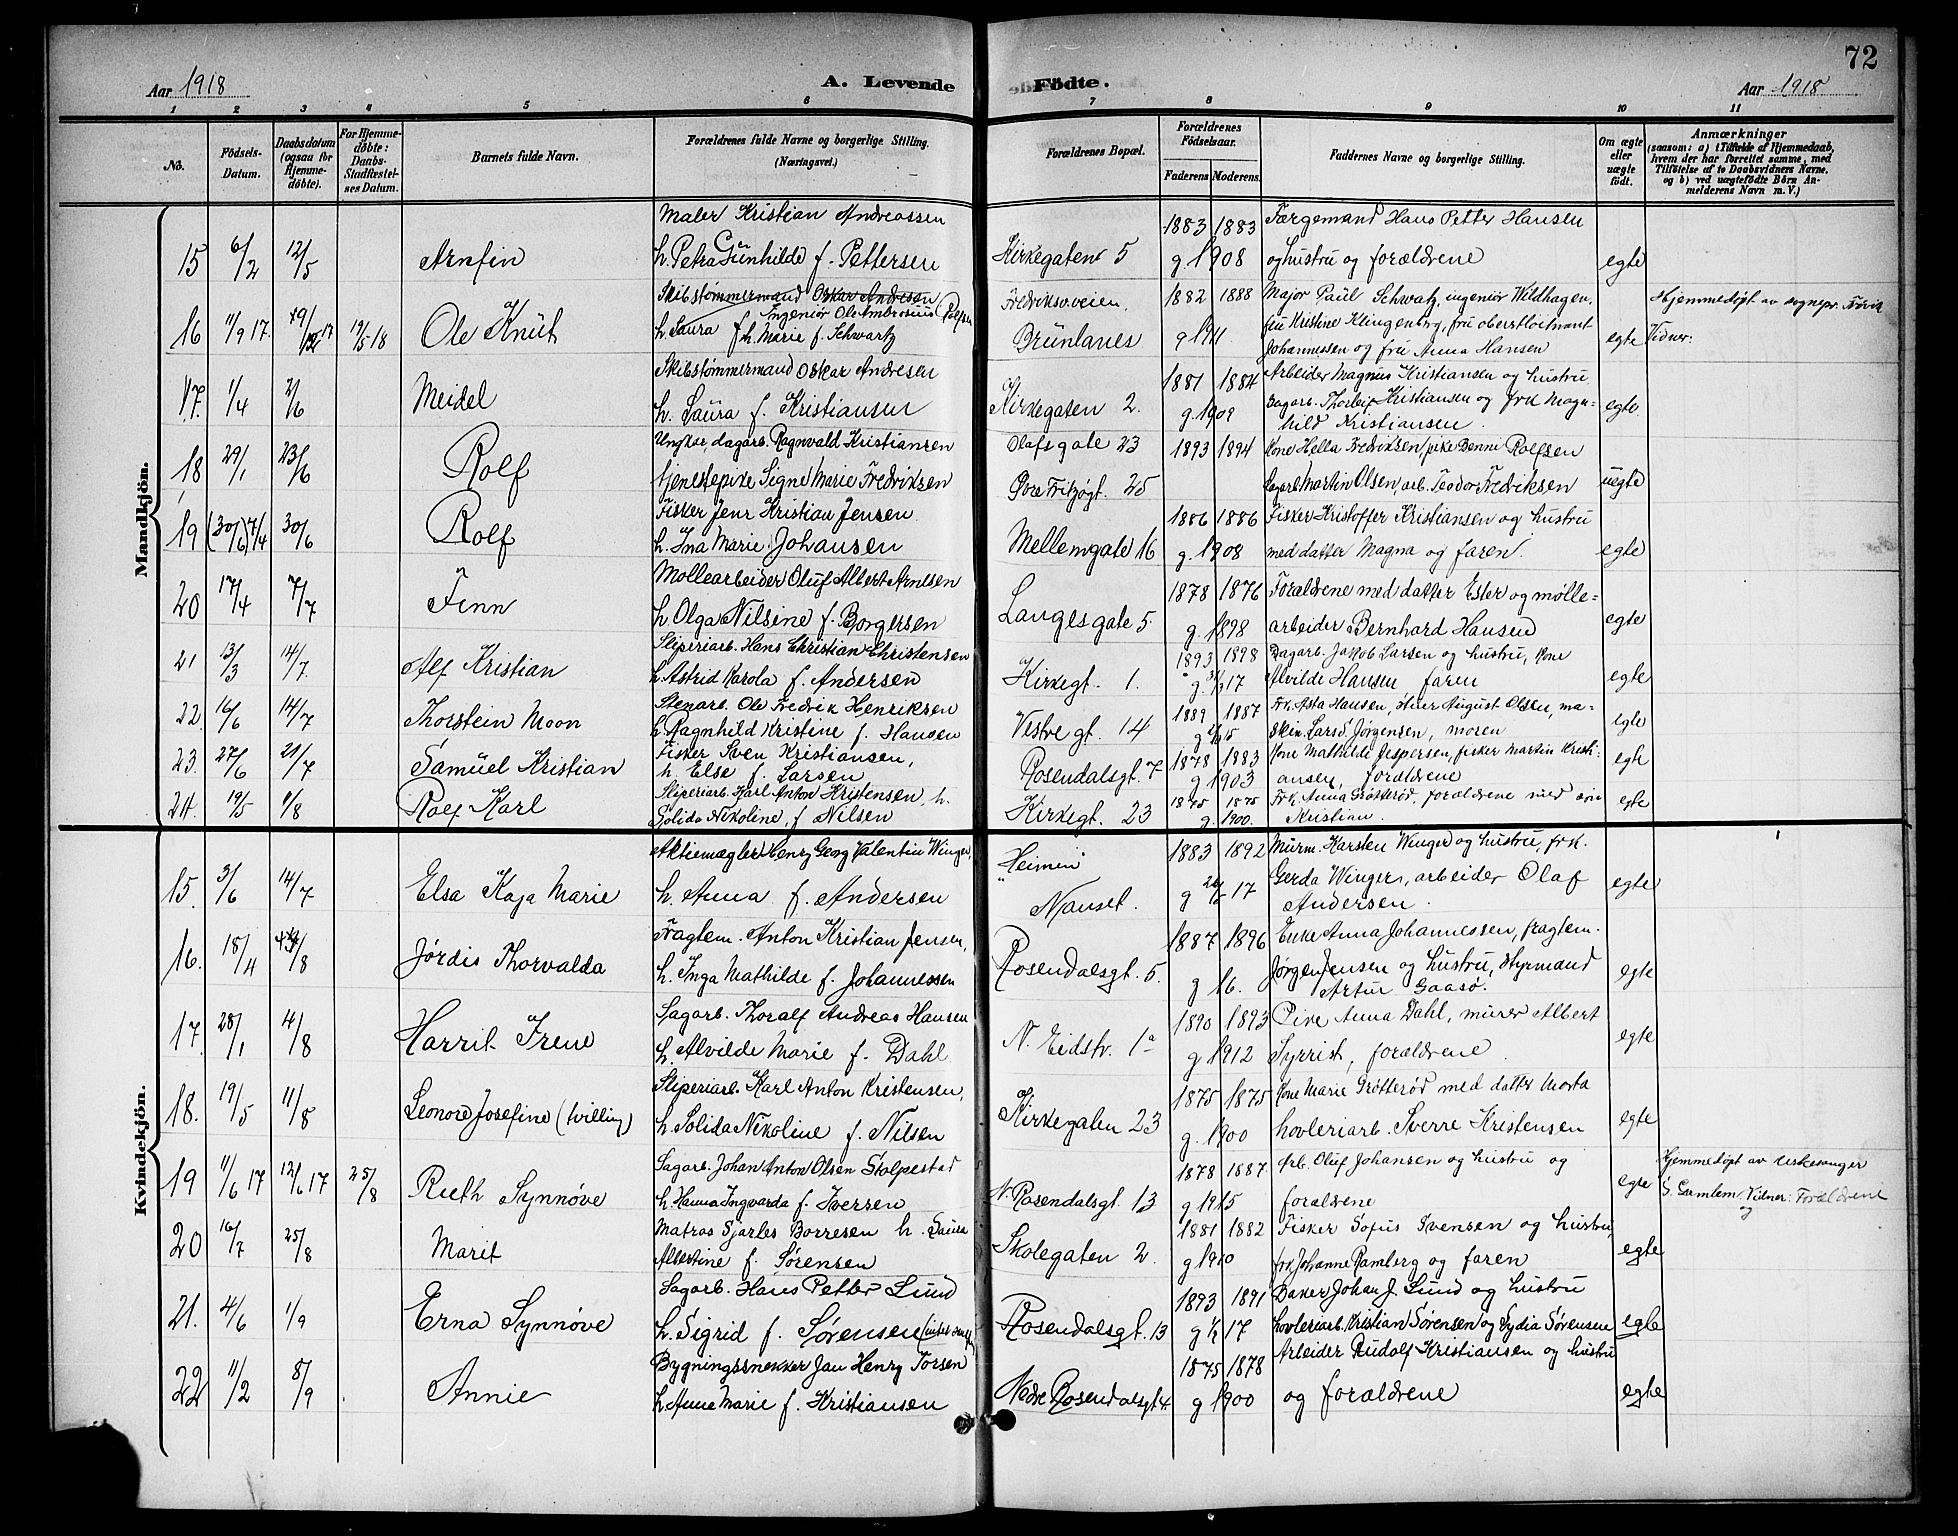 72
Aar 1918 A. Levende Födte. Aar 1918
1 2 3 4 5 6 7 8 9 10 11
No. Födsels-Datum. Daabsdatum (ogsaa for Hjemmedöbte). For Hjemmedöbte: Daabs-Stadfæstelses Datum. Barnets fulde Navn. Forældrenes fulde Navne og borgerlige Stilling. (Næringsvei.) Forældrenes Bopæl. Forældrenes Födselsaar. Faderens Moderens. Faddernes Navne og borgerlige Stilling. Om ægte eller uægte födt. Anmærkninger (saasom: a) i Tilfælde af Hjemmedaab, hvem der har forrettet samme, med Tilföielse af to Daabsvidners Navne, og b) ved uægtefödte Börn Anmelderens Navn m. V.)
Mandkjön.
Maler Kristian Andreassen 1883 1883 Færgemand Hans Petter Hansen
15 6/2 12/5 Arnfin h. Petra Gunhilde f. Pettersen Kirkegaten 5 g. 1908 og hustru og forældrene egte
Skibstømmermand Oskar Andresen Fredriksv.veien 1882 1888 Major Paul Schwatz, ingeniør Wildhagen, Hjemmedøpt av sognepr.
Ingeniør Ole Ambrosius Rolfsen
16 11/9 17. 19/5 18 Ole Knut h. Laura f. h. Marie f. Schwartz Brunlanes g 1911 fru Kristine Klingenberg, fru oberstløitnant egte Vidner:
Johannessen og fru Anna Hansen
Skibstømmermand Oskar Andresen 1881 1884 Arbeider Magnus Kristiansen og hustru,
17. 1/4 2/6 Meidel h. Laura f. Kristiansen Kirkegaten 2. g. 1909 Dagarb. Thorleif Kristiansen og frk Magn-
hild Kristiansen. egte
Ungkar, dagarb. Ragnvald Kristiansen Olafsgate 23 1893 1894 Kone Hella Fredriksen, pike Benni Rolfsen
18 29/1 23/6 Rolf tjenestepike Signe Marie Fredriksen Øvre Fritzøgt. 25 Dagarb Martin Olsen, arb. Teodor Fredriksen uegte
Fisker Jens Kristian Jensen 1886 1886 Fisker Kristoffer Kristiansen og hustru
19 (30/6) 7/4 30/6 Rolf h. Ina Marie Johansen Mellemgate 16 g. 1908 med datter Magna og faren. egte
Møllearbeider Oluf Albert Arntsen 1878 1876 Forældrene med datter Ester og mølle=
20 17/4 7/7 Finn h. Olga Nilsine f. Borgersen Langesgate 5 g. 1898 arbeider Bernhard Hansen egte
Sliperiarb. Hans Christian Christensen 1893 1898 Dagarb. Jakob Larsen og hustru, kone
21 13/3 14/7. Alf Kristian h. Astrid Karola f. Andersen Kirkegt. 1. g. 17 Alvilde Hansen faren egte
Stenarb. Ole Fredrik Henriksen 1889 1887 Frk. Asta Hansen, Olsen, ma-
22. 16/6 14/7 Thorstein Moon h. Ragnhild Kristine f. Hansen Vestre gt. 14 g 15 skin. Lars S. Jørgensen, moren egte
Fisker Sven Kristiansen, 1878 1883 Kone Mathilde Jespersen, fisker Martin Kristi-
23. 27/6 21/7 Samuel Kristian h. Else f. Larsen Rosendalsgt. 7 g 1903 ansen, forældrene egte
24. 19/5 Rolf Karl Sliperiarb. Karl Anton Kristensen, h. Kirkegt. 23 1875 1875 Frk. Anna Grøtterød, forældrene med søn egte
Solida Nikoline, f Nilsen g. 1900. Kristian.
Kvindekjön.
Aktiemægler Henry Georg Valentin Winger, "Heimen" 1883 1892 Murm. Karsten Winger og hustru, frk.
15. 3/6 14/7 Elsa Kaja Marie h. Anna f. Andersen Nanset. g 17 Gerda Winger, arbeider Olaf egte
Andersen.
Fragtem. Anton Kristian Jensen, 1887 1896 Enke Anna Johannessen, fragtem.
16. 18/4 4/8 Jørdis Thorvalda h. Inga Mathilde f. Johannessen Rosendalsgt. 5. g 16. Jørgen Jensen og hustru, styrmand egte
Artur Gaasø.
Sagarb. Thoralf Andreas Hansen 1890 1893 Pike Anna Dahl, murer Albert
17. 28/1 4/8 Harrit Irene h. Alvilde Marie f. Dahl N. Eidstv. 1a g 1912 Syrrist, forældrene. egte
Sliperiarb. Karl Anton Kristensen, 1875 1875 Kone Marie Grøtterød med datter Marta
18. 19/5 11/8 Leonore Josefine (tvilling) h. Solida Nikoline f. Nilsen Kirkegaten 23 g. 1900 høvleriarb. Sverre Kristensen egte
Sagarb. Johan Anton Olsen Stolpestad 1878 1887 Arb. Oluf Johansen og hustru og Hjemmedøpt av kirkesanger
19 11/6 17 12/6 17 25/8 Ruth Synnøve h. Hanna Ingvarda f. Iversen N. Rosendalsgt. 13 g 1915 forældrene egte S. Gamlem, Vidner: Forældrene
og
Matros Sjarles Borresen h. Laura 1881 1882 Fisker Sofus Svensen og hustru,
20 16/7 25/8 Marit Albertine f. Sørensen Skolegaten 2. g 1910 frk Johanne Ramberg og faren egte
Sagarb. Hans Petter Lund 1893 1891 Baker Johan J. Lund og hustru
21. 4/6 1/9 Erna Synnøve h. Sigrid f. Sørensen Rosendalsgt. 13 g 17 høvleriarb. Kristian Sørensen og Lydia Sørensen egte
Bygningssnekker Jan Henry Torsen 1875 1878 Arbeider Rudolf Kristiansen og hustru
22 11/2 8/9 Annie h. Anne Marie f. Kristiansen Nedre Rosendalsgt 4. g 1900 og forældrene egte